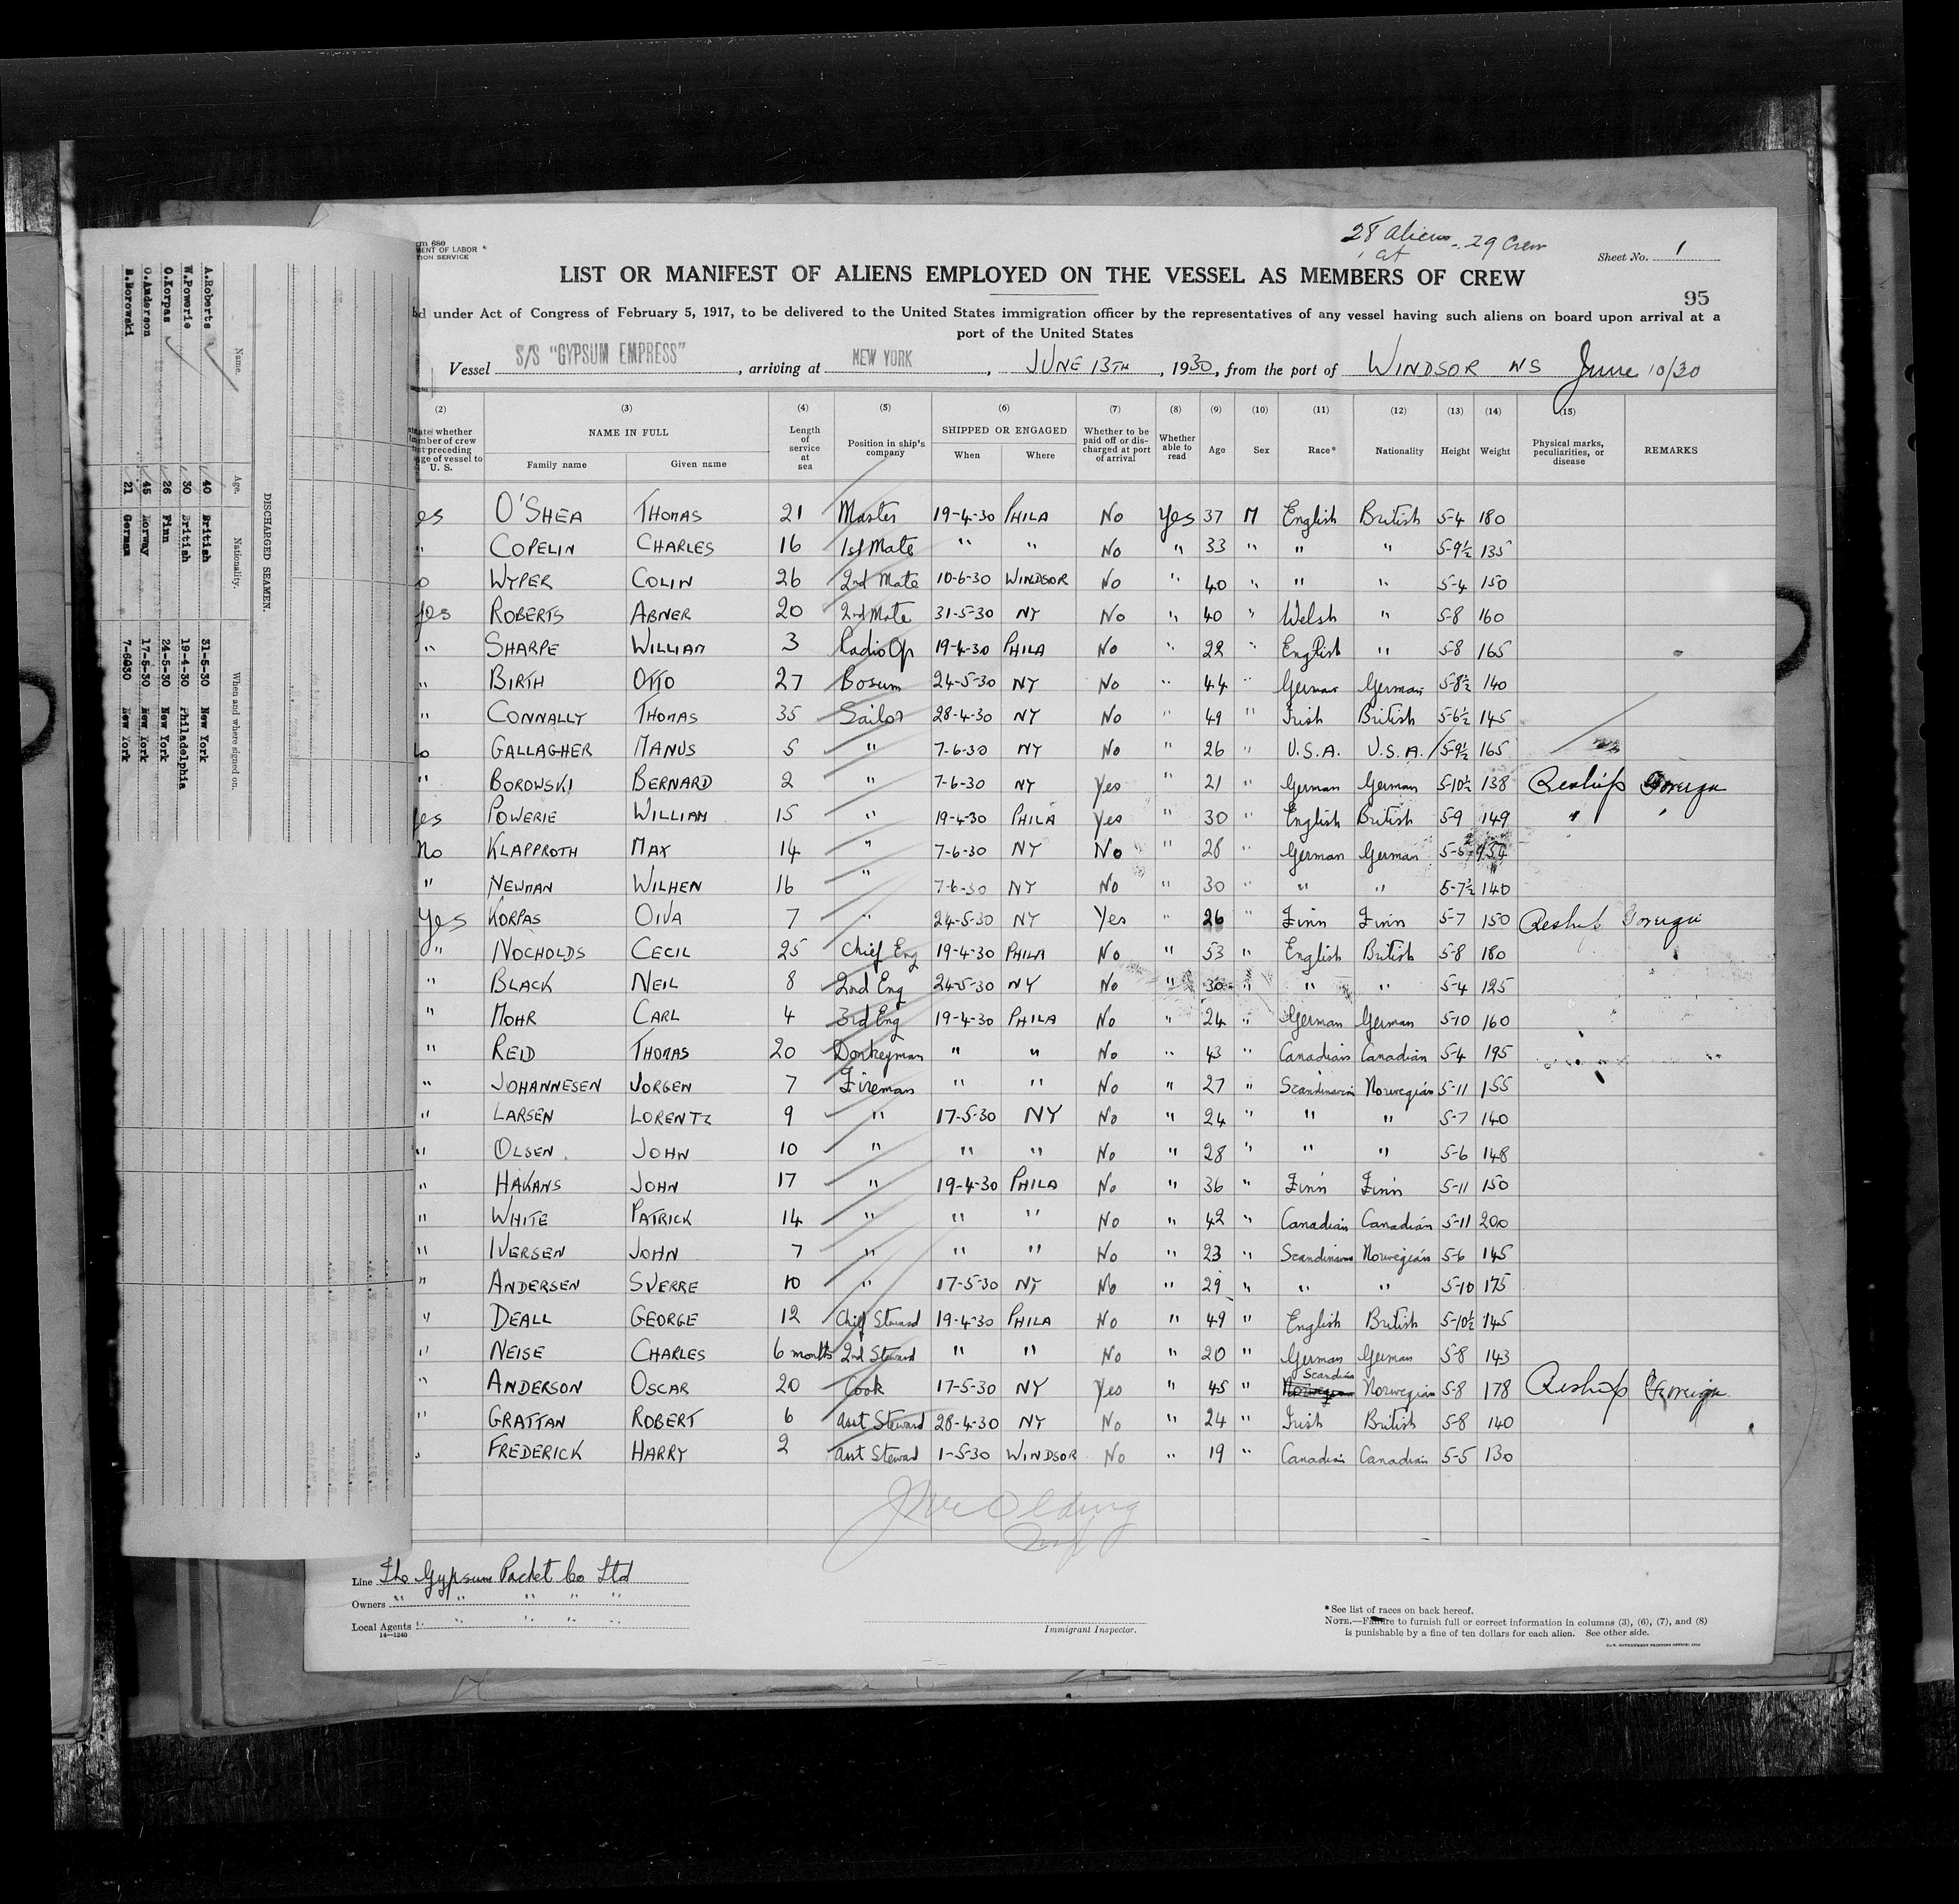 28 aliens - 29 Crew
at
rm 680
MENT OF LABOR
TION SERVICE
Sheet No. 1
LIST OR MANIFEST OF ALIENS EMPLOYED ON THE VESSEL AS MEMBERS OF CREW
95
d under Act of Congress of February 5, 1917, to be delivered to the United States immigration officer by the representatives of any vessel having such aliens on board upon arrival at a
port of the United States
Vessel S/S "GYPSUM EMPRESS", arriving at NEW YORK, JUNE 13TH, 1930, from the port of WINDSOR NS June 10/30
(2) (3) (4) (5) (6) (7) (8) (9) (10) (11) (12) (13) (14) (15)
whether mber of crew preceding age of vessel to U. S. NAME IN FULL Family name Given name Length of service at sea Position in ship's company SHIPPED OR ENGAGED When Where Whether to be paid off or discharged at port of arrival Whether able to read Age Sex Race* Nationality Height Weight Physical marks, peculiarities, or disease REMARKS
es O'SHEA THOMAS 21 Master 19-4-30 PHILA No Yes 37 M English British 5-4 180
" COPELIN CHARLES 16 1st Mate " " No " 33 " " " 5-9½ 135
o WYPER COLIN 26 2nd Mate 10-6-30 WINDSOR No " 40 " " " 5-4 150
Yes ROBERTS ABNER 20 2nd Mate 31-5-30 NY No " 40 " Welsh " 5-8 160
" SHARPE WILLIAM 3 Radio Op 19-4-30 PHILA No " 22 " English " 5-8 165
" BIRTH OTTO 27 Bosum 24-5-30 NY No " 44 " German German 5-8½ 140
" CONNALLY THOMAS 35 Sailor 28-4-30 NY No " 49 " Irish British 5-6½ 145
o GALLAGHER MANUS 5 " 7-6-30 NY No " 26 " U.S.A. U.S.A. 5-9½ 165
" BOROWSKI BERNARD 2 " 7-6-30 NY Yes " 21 " German German 5-10½ 138 Reship Foreign
Yes POWERIE WILLIAM 15 " 19-4-30 PHILA Yes " 30 " English British 5-9 149 " "
No KLAPPROTH MAX 14 " 7-6-30 NY No " 28 " German German 5-6 154
" NEWMAN WILHEN 16 " 7-6-30 NY No " 30 " " " 5-7½ 140
Yes KORPAS OIVA 7 " 24-5-30 NY Yes " 26 " Finn Finn 5-7 150 Reship Foreign
" NOCHOLDS CECIL 25 Chief Eng 19-4-30 PHILA No " 53 " English British 5-8 180
" BLACK NEIL 8 2nd Eng 24-5-30 NY No " 30 " " " 5-4 125
" MOHR CARL 4 3rd Eng 19-4-30 PHILA No " 24 " German German 5-10 160
" REID THOMAS 20 Donkeyman " " No " 43 " Canadian Canadian 5-4 195
" JOHANNESEN JORGEN 7 Fireman " " No " 27 " Scandinavian Norwegian 5-11 155
" LARSEN LORENTZ 9 " 17-5-30 NY No " 24 " " " 5-7 140
" OLSEN JOHN 10 " " " No " 28 " " " 5-6 148
" HAKANS JOHN 17 " 19-4-30 PHILA No " 36 " Finn Finn 5-11 150
" WHITE PATRICK 14 " " " No " 42 " Canadian Canadian 5-11 200
" IVERSEN JOHN 7 " " " No " 23 " Scandinavian Norwegian 5-6 145
" ANDERSEN SVERRE 10 " 17-5-30 NY No " 29 " " " 5-10 175
" DEALL GEORGE 12 Chief Steward 19-4-30 PHILA No " 49 " English British 5-10½ 145
" NEISE CHARLES 6 months 2nd Steward " " No " 20 " German German 5-8 143
" ANDERSON OSCAR 20 Cook 17-5-30 NY Yes " 45 " Norwegian Scandin Norwegian 5-8 178 Reship Foreign
" GRATTAN ROBERT 6 asst Steward 28-4-30 NY No " 24 " Irish British 5-8 140
" FREDERICK HARRY 2 asst Steward 1-5-30 WINDSOR No " 19 " Canadian Canadian 5-5 130
Line The Gypsum Packet Co Ltd
Owners " " " " "
Local Agents " " " " "
14—1240
Immigrant Inspector.
*See list of races on back hereof.
NOTE.—Failure to furnish full or correct information in columns (3), (6), (7), and (8)
is punishable by a fine of ten dollars for each alien. See other side.
U.S. GOVERNMENT PRINTING OFFICE
DISCHARGED SEAMEN.
Name. Age. Nationality. When and where signed on.
A.Roberts 40 British 31-5-30 New York
W.Powerie 30 British 19-4-30 Philadelphia
O.Korpas 26 Finn 24-5-30 New York
O.Anderson 45 Norway 17-5-30 New York
B.Borowski 21 German 7-6030 New York